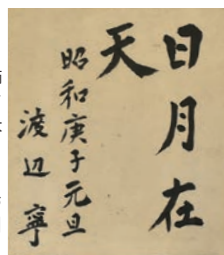 日月在
天
昭和庚子元旦
渡辺寧